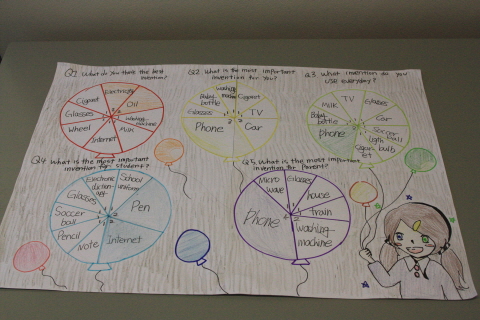 Q1 What do you think the best
invention?
Electricity
Oil
washing-
machine
Milk
Internet
Wheel
Glasses
Cigaret
Q2 What is the most important
invention for you?
washing
Cigaret
TV
Car
Phone
Glasses
Baby
bottle
Q3 What invention do you
use everyday?
TV
Glasses
Car
Soccer
ball
light
bulb
Phone
bottle
Milk
Q4 What is the most important
invention for student?
School
uniform
Pen
Internet
note
Pencil
Soccer
ball
Glasses
Electronic
Q5 What is the most important
invention for Parent?
Micro
wave
Glasses
house
train
washing-
machine
Phone